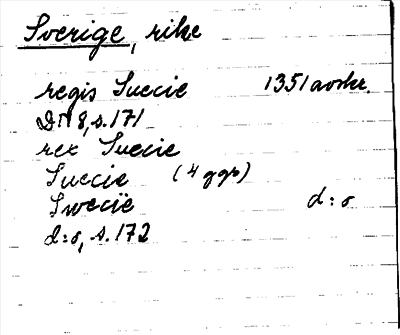 Sverige, rike
regis Suecie 1351 avskr.
DN 8, s. 171
rex Suecie
Suecie (4 ggr)
Swecie d:o
d:o, s. 172